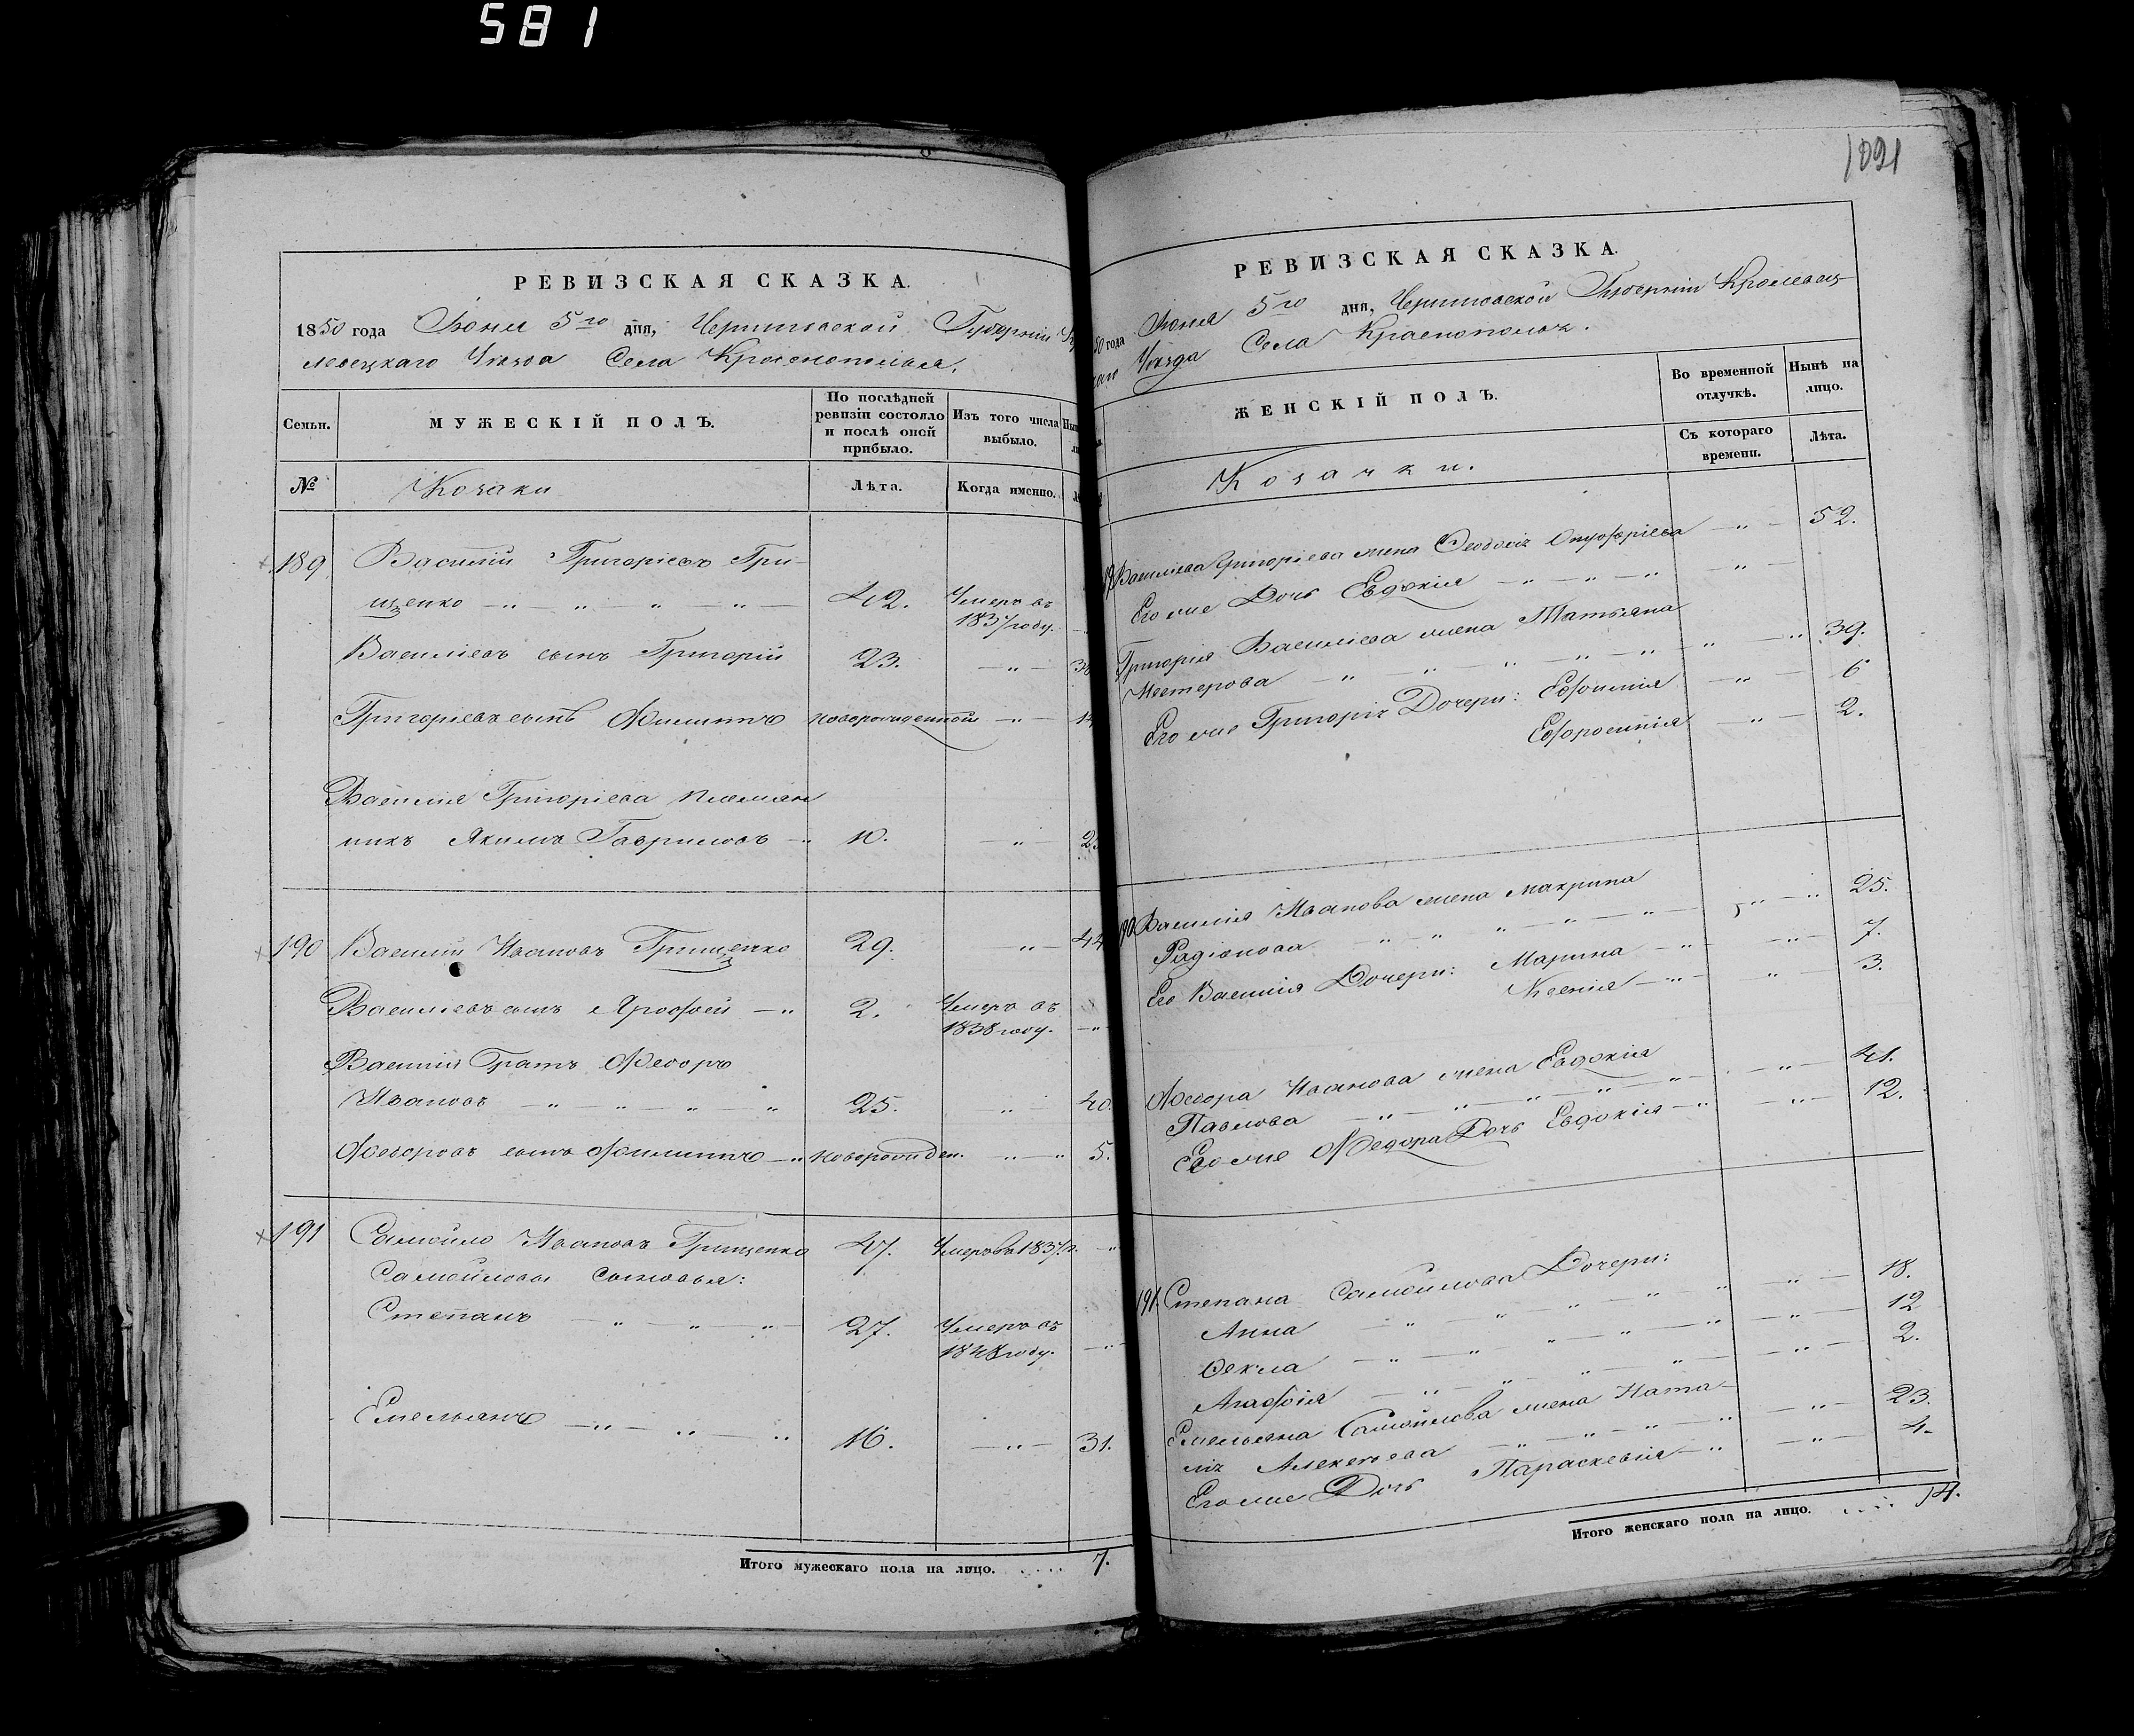 581
1021
РЕВИЗСКАЯ СКАЗКА.
1850 года Іюня 5го дня, Черниговской Губерніи
левецкаго Уѣзда Села Краснополья.
Семьи.
МУЖЕСКІЙ ПОЛЪ.
По послѣдней ревизіи состояло и послѣ оной прибыло.
Изъ того числа выбыло.
№
Козаки
Лѣта.
Когда именно.
189 Василій Григорьевъ Гри-
щенко 42. Умеръ въ
1837 году.
Васильевъ сынъ Григорій 23.
Григорьевъ сынъ Филиппъ новорожденной
Василія Григорьева племян
никъ Якимъ Гавриловъ 10.
190 Василій Ивановъ Грищенко 29. 44
Васильевъ сынъ Ярофей 2. Умеръ въ
1838 году.
Василія Братъ Федоръ
Ивановъ 25. 40.
Федоровъ сынъ Филиппъ новорожден. 5.
191 Самойло Ивановъ Грищенко 47. Умеръ въ 1837 г.
Самойловы сыновья:
Степанъ 27. Умеръ въ
1848 году.
Емельянъ 16. 31.
Итого мужескаго пола на лицо. .... 7.
РЕВИЗСКАЯ СКАЗКА.
50 года Іюня 5го дня, Черниговской Губерніи Кролевец-
каго Уѣзда Села Краснополья.
ЖЕНСКІЙ ПОЛЪ.
Во временной отлучкѣ.
Нынѣ на лицо.
Съ котораго времени.
Лѣта.
Козачки.
Василіева Григоріева жена Феодосія Онуфріева 52.
Его же Дочь Евдокія
Григорія Василіева жена Татьяна
Нестерова 39.
Его же Григорія Дочери: Евфимія 6
Евфросинія 2.
190 Василія Иванова жена Макрина
Радіонова 25.
Его Василія Дочери: Марина 7.
Ксенія 3.
Федора Иванова жена Евдокія
Павлова 41.
Его же Федора Дочь Евдокія 12.
191. Степана Самойлова Дочери:
Анна 18.
Фекла 12
Агафія 2.
Емельяна Самойлова жена Ната-
лія Алексеева 23.
Его же Дочь Параскевія 4.
Итого женскаго пола на лицо. .... 14.